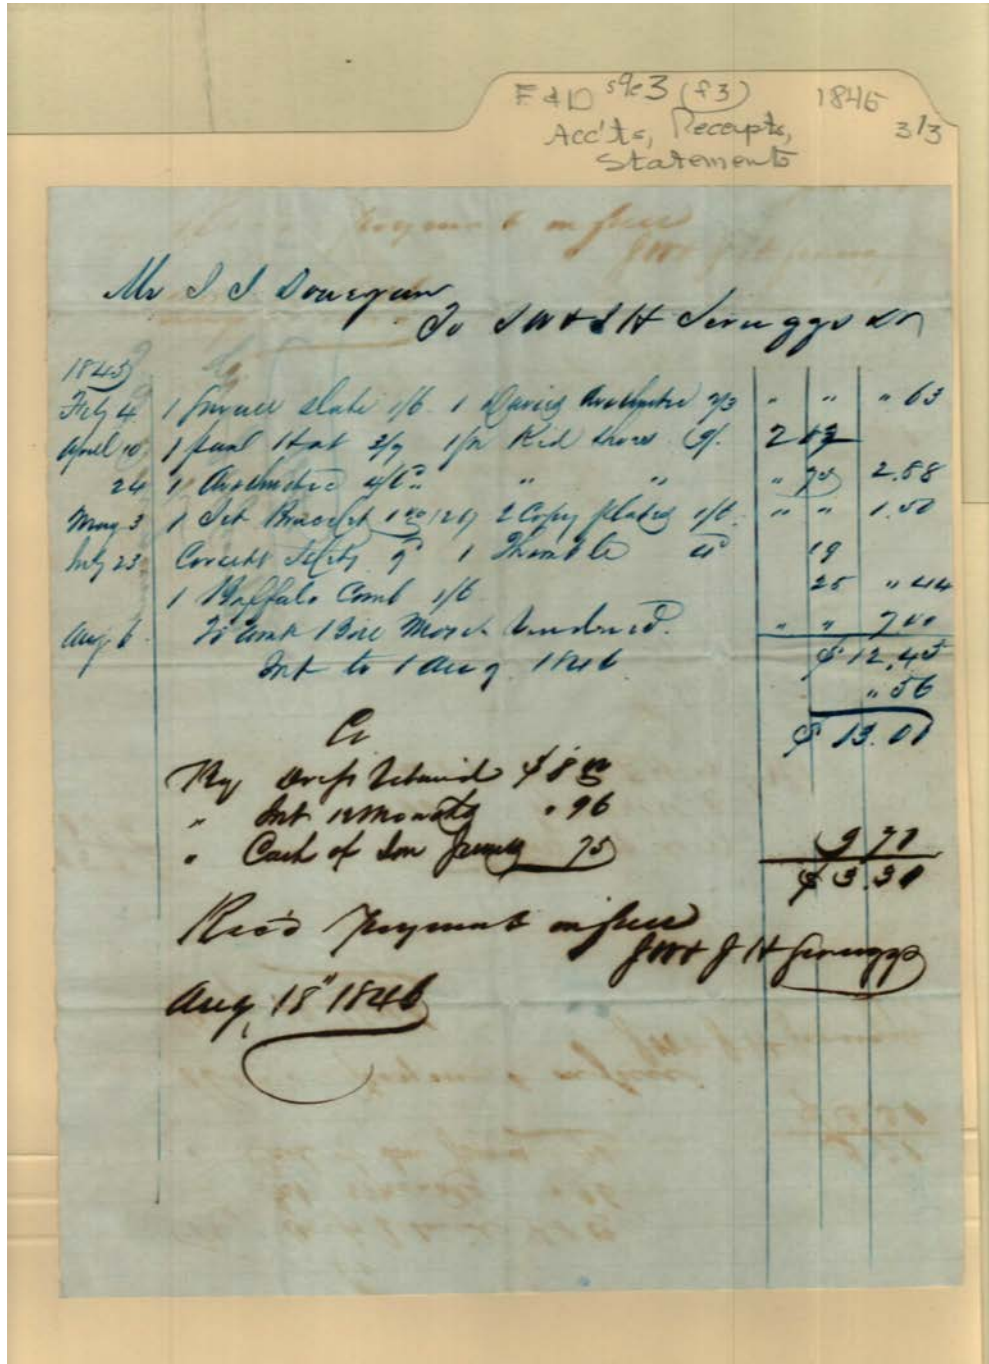 F & D s9e3 (f3) 1845
Acc'ts, Receipts, 3/3
Statements
Mr J J Donegan
To J W & J H Scruggs Dr
1845
Feby 4 1 slate 1/6 1 Davies Arithmetic 2/3 " " " 63
April 10 1 Hat 3/9 1 pr Kid shoes 9/. 2 13
24 1 Arithmetic 4/6 " " " 75 2.88
May 3 1 Jet Bracelet 1.00 2 Copy 1/6 " " 1.50
July 23 Concert 9d 1 Thimble 19
1 Buffalo Comb 1/6 25 " 44
Aug 6 To 7.00
Int to 1 Aug. 1846 $ 12.45
" 56
$ 13.01
Cr
By $ 8.00
" Int 12 Months " 96
" Cash of Son 75 9 71
$ 3.30
Rec'd Payment in full
J W & J H Scruggs
Aug. 18" 1846